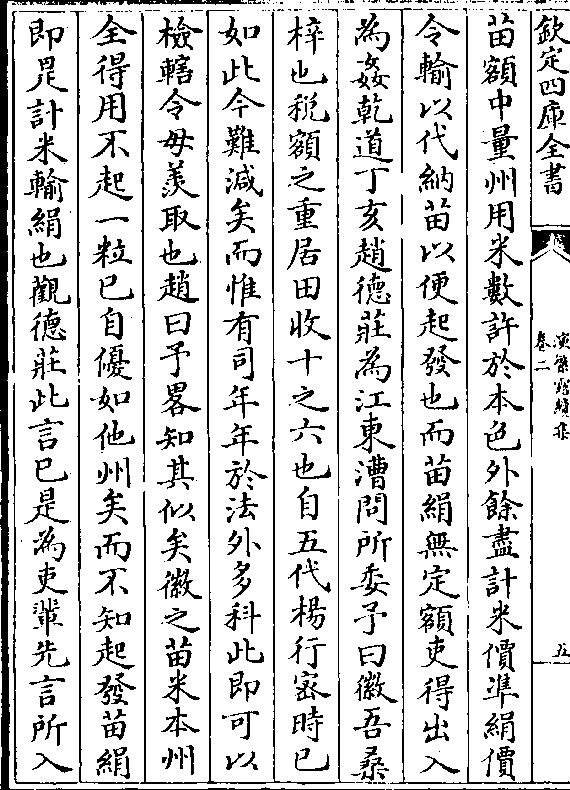 欽定四庫全書
演繁露續集
卷二
五
苗額中量州用米數許於本色外餘盡計米價準絹價
令輸以代納苗以便起發也而苗絹無定額吏得出入
為姦乾道丁亥趙德莊為江東漕問所委予曰徽吾桑
梓也稅額之重居田收十之六也自五代楊行密時已
如此今難減矣而惟有司年年於法外多科此即可以
檢轄令毋羨取也趙曰予畧知其似矣徽之苗米本州
全得用不起一粒已自優如他州矣而不知起發苗絹
即是計米輸絹也觀德莊此言已是為吏輩先言所入